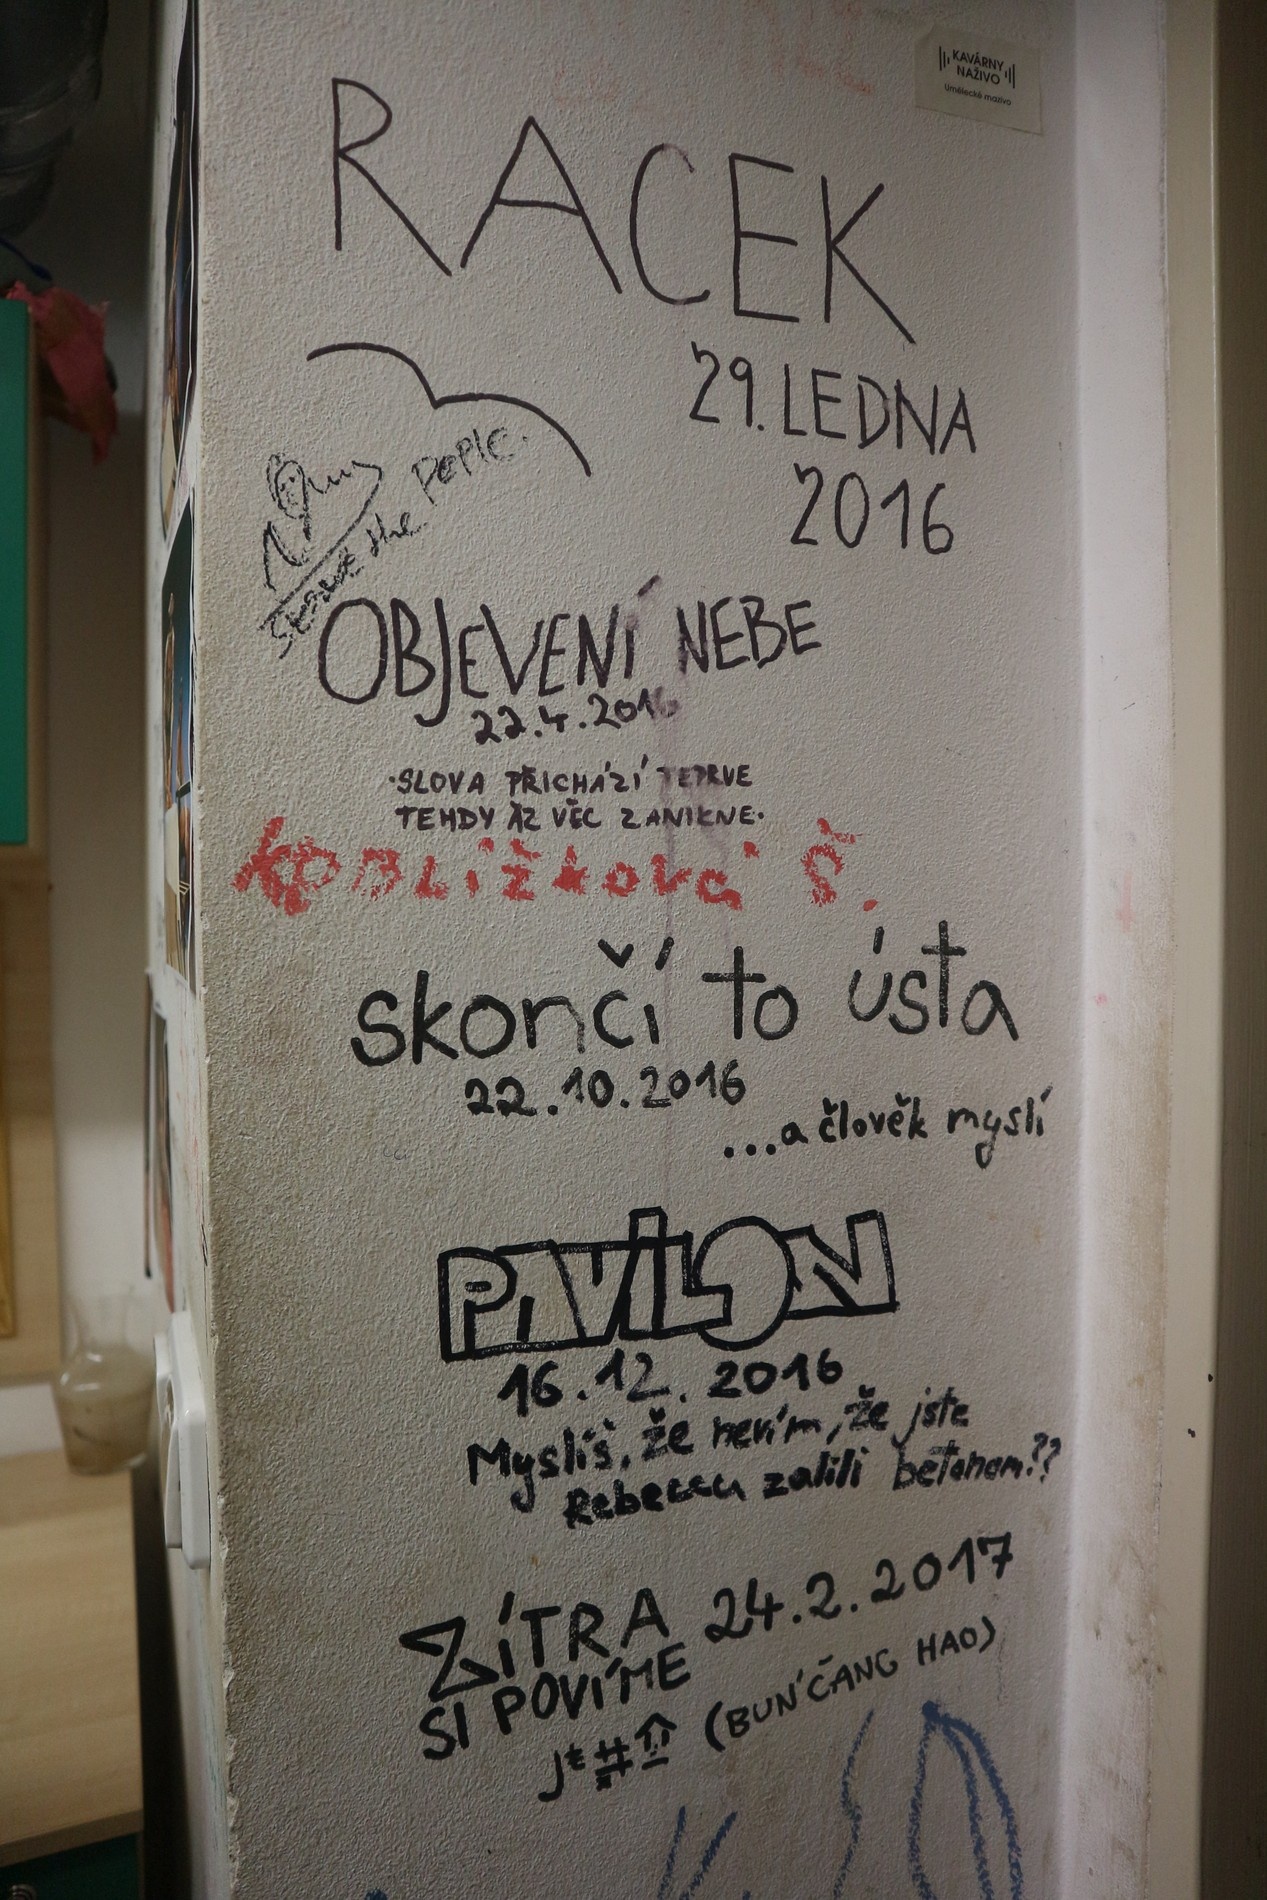 KAVÁRNY
NAŽIVO
Umělecké mazivo
RACEK
29. LEDNA
2016
SERVE the PEPLE.
OBJEVENÍ NEBE
22.4.2016
·SLOVA PŘICHÁZÍ TEPRVE
TEHDY AŽ VĚC ZANIKNE·
KOBLÍŽKOVÁ Š.
skončí to ústa
22.10.2016
...a člověk myslí
PAVILON
16.12.2016
Myslíš, že nevím, že jste
Rebeccu zalili betonem??
ZÍTRA 24.2.2017
SI POVÍME
(BUN'ČANG HAO)